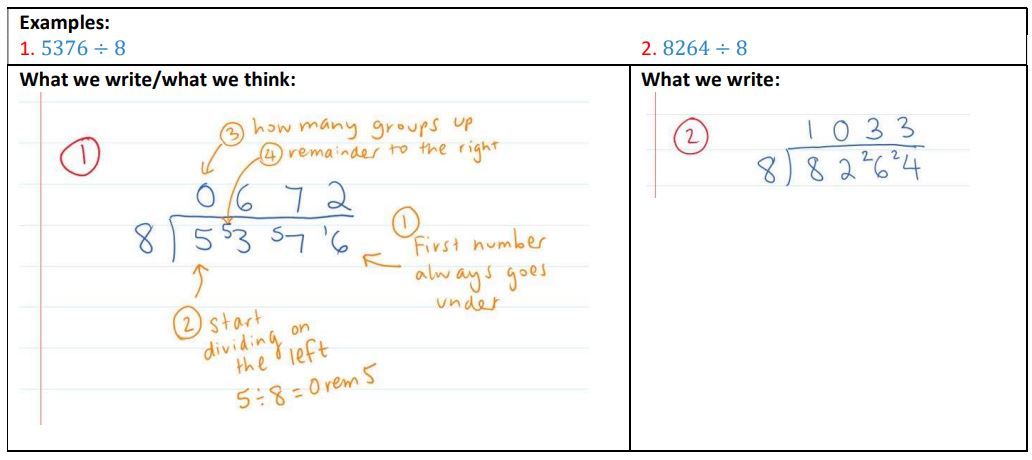 Examples:
1. 5376 ÷ 8
2. 8264 ÷ 8
What we write/what we think:
① 
③ how many groups up
④ remainder to the right
0 6 7 2
8 ) 5 ⁵3 ⁵7 ¹6
① First number
always goes
under
② start
dividing on
the left
5÷8=0rem5
What we write:
②
1 0 3 3
8 ) 8 2 ²6 ²4